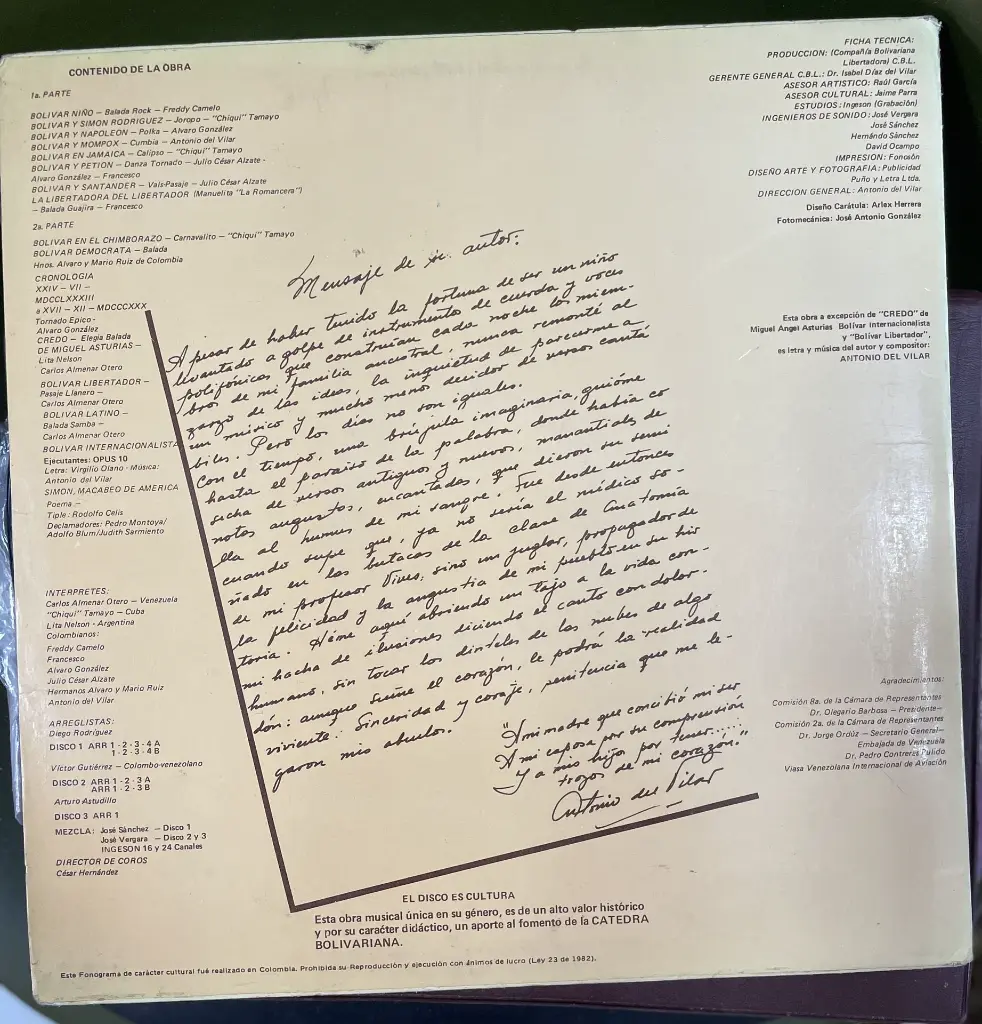 CONTENIDO DE LA OBRA
1a. PARTE
BOLIVAR NIÑO – Balada Rock – Freddy Camelo
BOLIVAR Y SIMON RODRIGUEZ – Joropo – "Chiqui" Tamayo
BOLIVAR Y NAPOLEON – Polka – Alvaro González
BOLIVAR Y MOMPOX – Cumbia – Antonio del Vilar
BOLIVAR EN JAMAICA – Calipso – "Chiqui" Tamayo
BOLIVAR Y PETION – Danza Tornado – Julio César Alzate -
Alvaro González – Francesco
BOLIVAR Y SANTANDER – Vals-Pasaje – Julio César Alzate
LA LIBERTADORA DEL LIBERTADOR (Manuelita "La Romancera")
– Balada Guajira – Francesco
2a. PARTE
BOLIVAR EN EL CHIMBORAZO – Carnavalito – "Chiqui" Tamayo
BOLIVAR DEMOCRATA – Balada
Hnos. Alvaro y Mario Ruiz de Colombia
CRONOLOGIA
XXIV – VII –
MDCCLXXXIII
a XVII – XII – MDCCCXXX
Tornado Epico -
Alvaro González
CREDO – Elegía Balada
DE MIGUEL ASTURIAS –
Lita Nelson
Carlos Almenar Otero
BOLIVAR LIBERTADOR –
Pasaje Llanero –
Carlos Almenar Otero
BOLIVAR LATINO –
Balada Samba –
Carlos Almenar Otero
BOLIVAR INTERNACIONALISTA
Ejecutantes: OPUS 10
Letra: Virgilio Olano - Música:
Antonio del Vilar
SIMON, MACABEO DE AMERICA
Poema –
Tiple: Rodolfo Celis
Declamadores: Pedro Montoya/
Adolfo Blum/Judith Sarmiento
INTERPRETES:
Carlos Almenar Otero – Venezuela
"Chiqui" Tamayo – Cuba
Lita Nelson - Argentina
Colombianos:
Freddy Camelo
Francesco
Alvaro González
Julio César Alzate
Hermanos Alvaro y Mario Ruiz
Antonio del Vilar
ARREGLISTAS:
Diego Rodríguez
DISCO 1 ARR 1 - 2 - 3 - 4 A
1 - 2 - 3 - 4 B
Víctor Gutiérrez – Colombo-venezolano
DISCO 2 ARR 1 - 2 - 3 A
ARR 1 - 2 - 3 B
Arturo Astudillo
DISCO 3 ARR 1
MEZCLA: José Sánchez – Disco 1
José Vergara – Disco 2 y 3
INGESON 16 y 24 Canales
DIRECTOR DE COROS
César Hernández
FICHA TECNICA:
PRODUCCION: (Compañía Bolivariana
Libertadora) C.B.L.
GERENTE GENERAL C.B.L.: Dr. Isabel Díaz del Vilar
ASESOR ARTISTICO: Raúl García
ASESOR CULTURAL: Jaime Parra
ESTUDIOS: Ingeson (Grabación)
INGENIEROS DE SONIDO: José Vergara
José Sánchez
Hernándo Sánchez
David Ocampo
IMPRESION: Fonosón
DISEÑO ARTE Y FOTOGRAFIA: Publicidad
Puño y Letra Ltda.
DIRECCION GENERAL: Antonio del Vilar
Diseño Carátula: Arlex Herrera
Fotomecánica: José Antonio González
Esta obra a excepción de "CREDO" de
Miguel Angel Asturias Bolívar Internacionalista
y "Bolívar Libertador",
es letra y música del autor y compositor:
ANTONIO DEL VILAR
Mensaje de su autor:
A pesar de haber tenido la fortuna de ser un niño
levantado a golpe de instrumento de cuerda y voces
polifónicas que construían cada noche los miem-
bros de mi familia ancestral, nunca remonté al
zarzo de las ideas, la inquietud de parecerme a
un músico y mucho menos decidor de versos canta
biles. Pero los días no son iguales.
Con el tiempo, una brújula imaginaria, guióme
hasta el paraíso de la palabra, donde había co
secha de versos antiguos y nuevos, manantiales de
notas angustos, encantadas, que dieron su semi
lla al humus de mi sangre. Fue desde entonces
cuando supe que, ya no sería el médico so-
ñado en las butacas de la clase de Anatomía
de mi profesor Vives, sino un juglar, propagador de
la felicidad y la angustia de mi pueblo en su his
toria. Héme aquí abriendo un tajo a la vida con-
mi hacha de ilusiones diciendo el canto con dolor-
humano, sin tocar los dinteles de las nubes de algo
dón: aunque sueñe el corazón, le podrá la realidad
viviente: Sinceridad y coraje, penitencia que me le-
garon mis abuelos.
"A mi madre que concibió mi ser
A mi esposa por su comprensión
Y a mis hijos por tener.....
trozos de mi corazón."
Antonio del Vilar
Agradecimientos:
Comisión 8a. de la Cámara de Representantes
Dr. Olegario Barbosa – Presidente–
Comisión 2a. de la Cámara de Representantes
Dr. Jorge Ordúz – Secretario General–
Embajada de Venezuela
Dr. Pedro Contreras Pulido
Viasa Venezolana Internacional de Aviación
EL DISCO ES CULTURA
Esta obra musical única en su género, es de un alto valor histórico
y por su carácter didáctico, un aporte al fomento de la CATEDRA
BOLIVARIANA.
Este Fonograma de carácter cultural fué realizado en Colombia. Prohibida su Reproducción y ejecución con ánimos de lucro (Ley 23 de 1982).